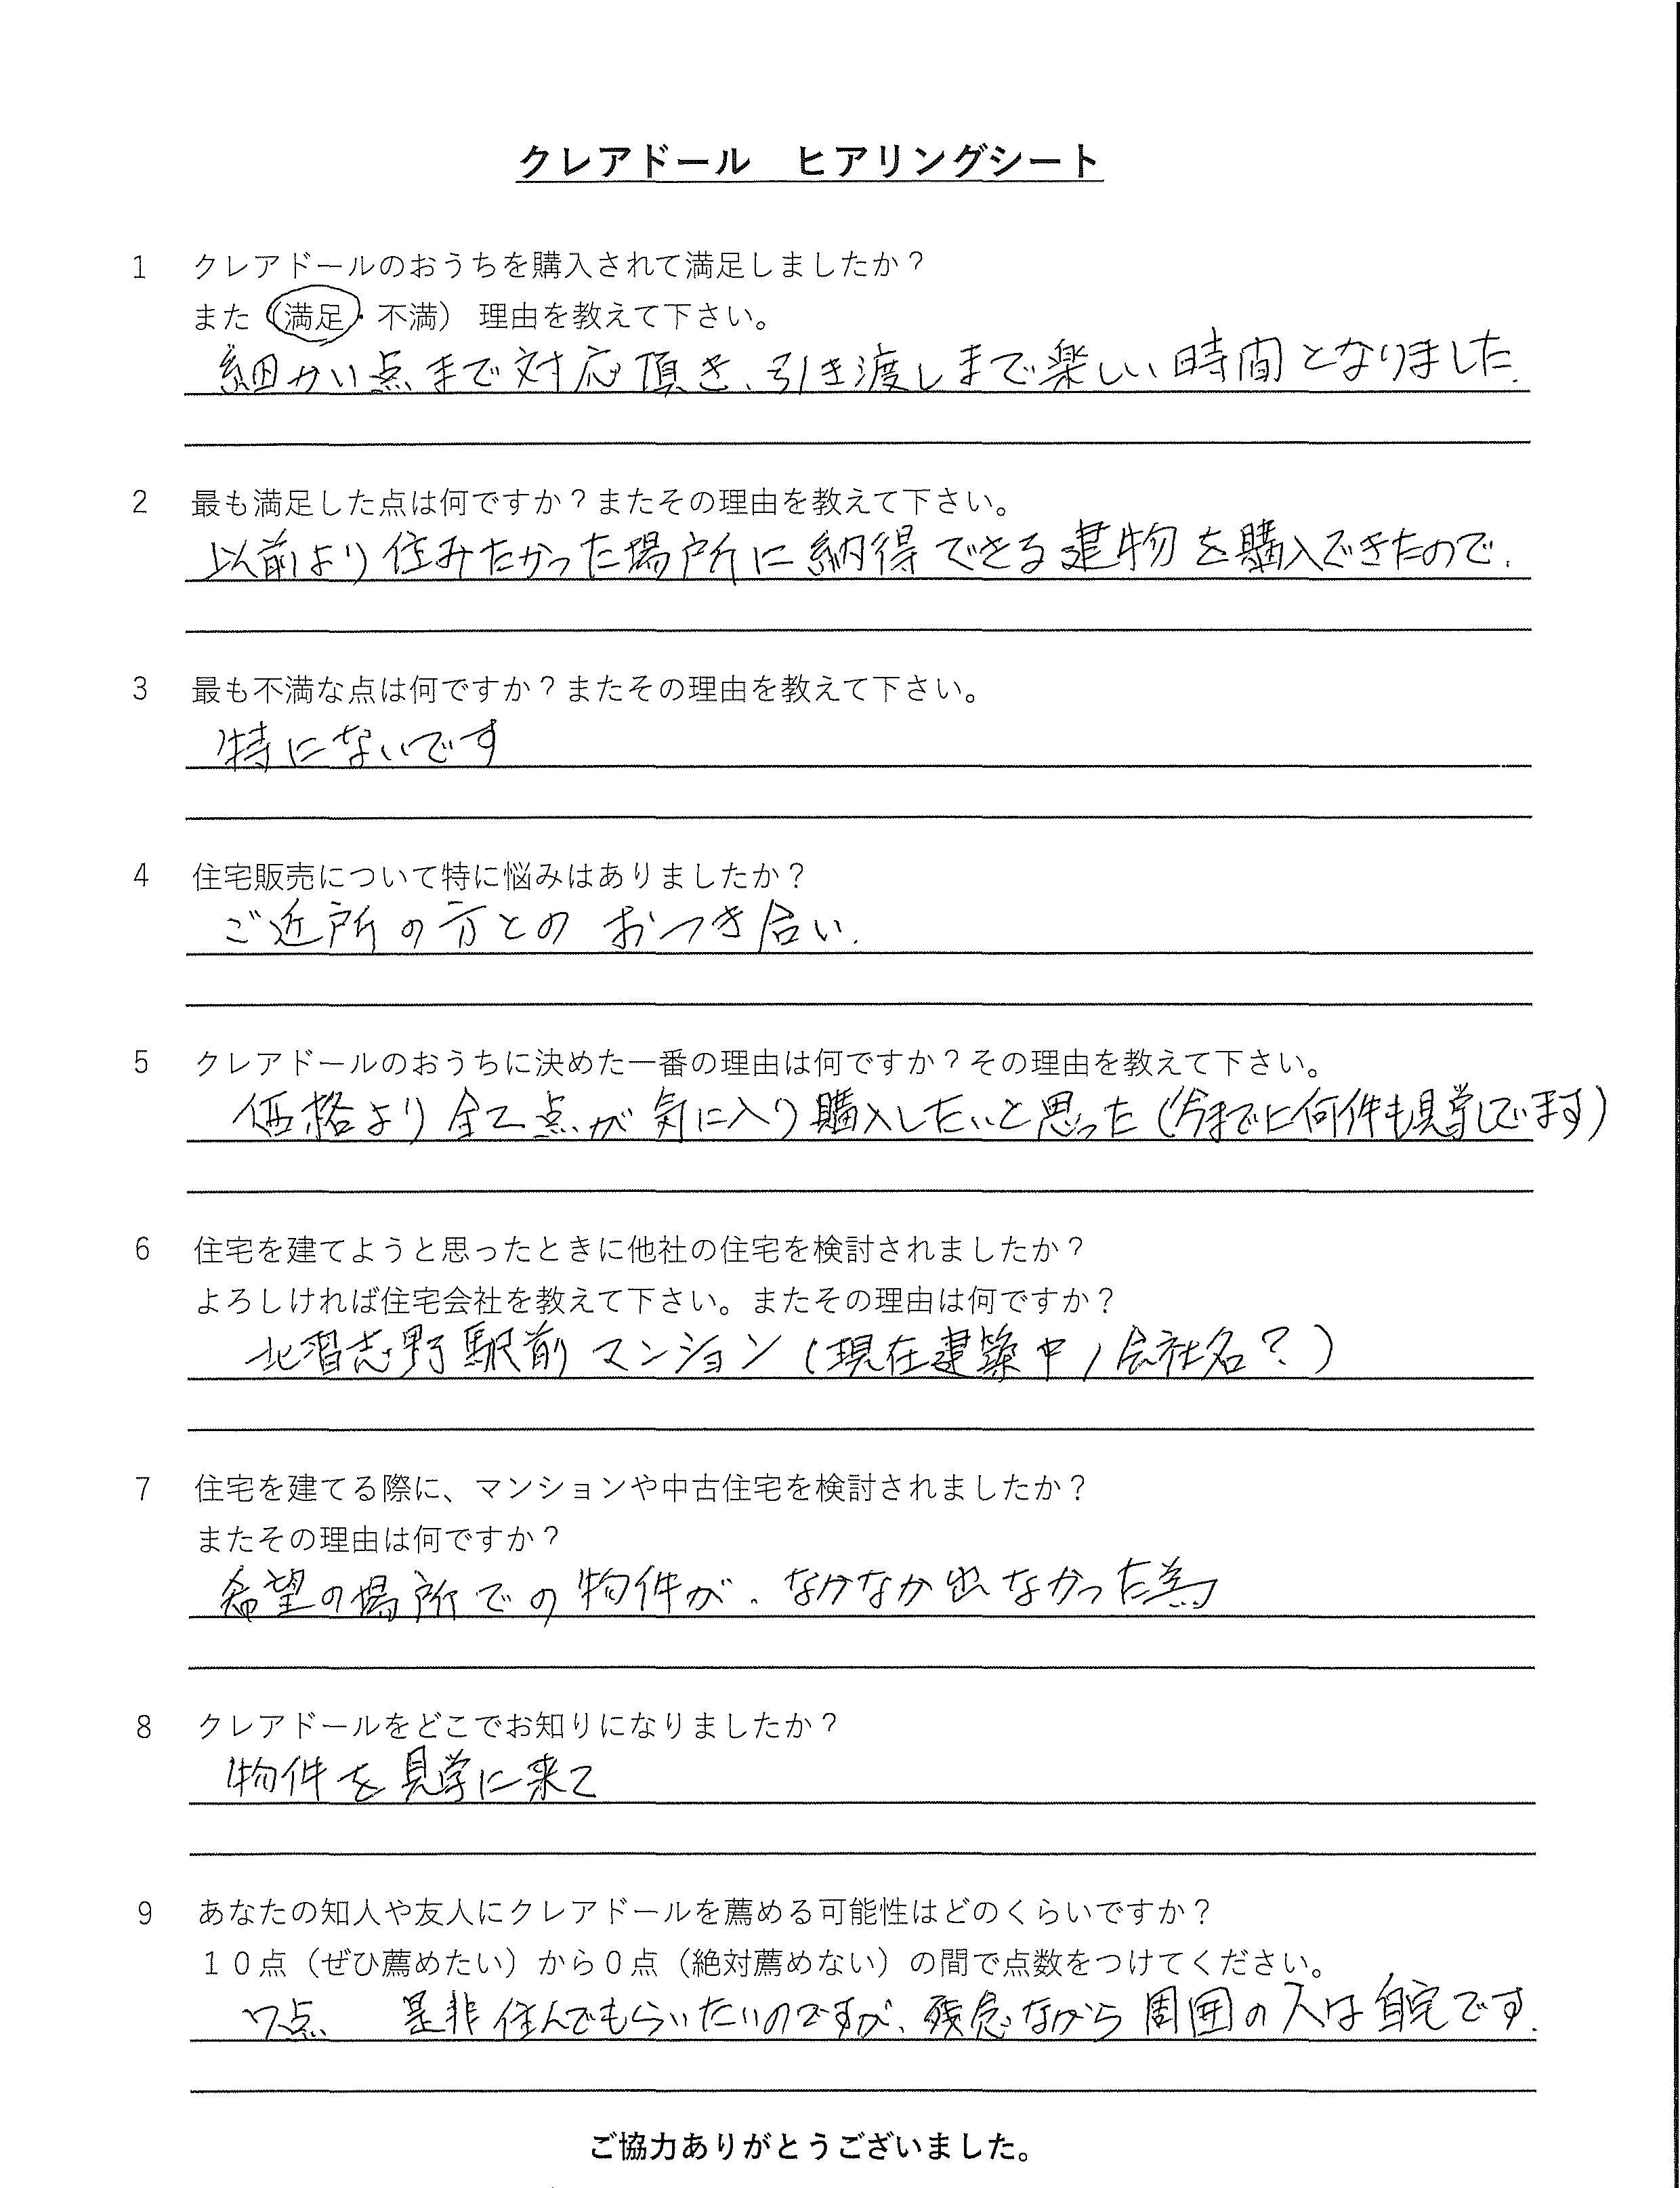 クレアドール　ヒアリングシート
1　クレアドールのおうちを購入されて満足しましたか？
また（満足・不満）　理由を教えて下さい。
細かい点まで対応頂き、引き渡しまで楽しい時間となりました.
2　最も満足した点は何ですか？またその理由を教えて下さい。
以前より住みたかった場所に納得できる建物を購入できたので.
3　最も不満な点は何ですか？またその理由を教えて下さい。
特にないです
4　住宅販売について特に悩みはありましたか？
ご近所の方とのおつき合い.
5　クレアドールのおうちに決めた一番の理由は何ですか？その理由を教えて下さい。
価格より全て点が気に入り購入したいと思った（今までに何件も見学しています）
6　住宅を建てようと思ったときに他社の住宅を検討されましたか？
よろしければ住宅会社を教えて下さい。またその理由は何ですか？
北習志野駅前マンション（現在建築中/会社名？）
7　住宅を建てる際に、マンションや中古住宅を検討されましたか？
またその理由は何ですか？
希望の場所での物件が、なかなか出なかった為
8　クレアドールをどこでお知りになりましたか？
物件を見学に来て
9　あなたの知人や友人にクレアドールを薦める可能性はどのくらいですか？
１０点（ぜひ薦めたい）から０点（絶対薦めない）の間で点数をつけてください。
7点　是非住んでもらいたいのですが、残念ながら周囲の人は自宅です.
ご協力ありがとうございました。